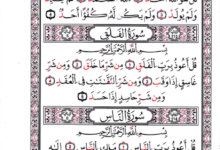 وَلَمْ يُولَدْ ۝ وَلَمْ يَكُن لَّهُ كُفُوًا أَحَدٌ ۝
سُورَةُ الْفَلَقِ
بِسْمِ اللَّهِ الرَّحْمَٰنِ الرَّحِيمِ
قُلْ أَعُوذُ بِرَبِّ الْفَلَقِ ۝ مِن شَرِّ مَا خَلَقَ ۝ وَمِن شَرِّ
غَاسِقٍ إِذَا وَقَبَ ۝ وَمِن شَرِّ النَّفَّاثَاتِ فِي الْعُقَدِ ۝
وَمِن شَرِّ حَاسِدٍ إِذَا حَسَدَ ۝
سُورَةُ النَّاسِ
بِسْمِ اللَّهِ الرَّحْمَٰنِ الرَّحِيمِ
قُلْ أَعُوذُ بِرَبِّ النَّاسِ ۝ مَلِكِ النَّاسِ ۝ إِلَٰهِ